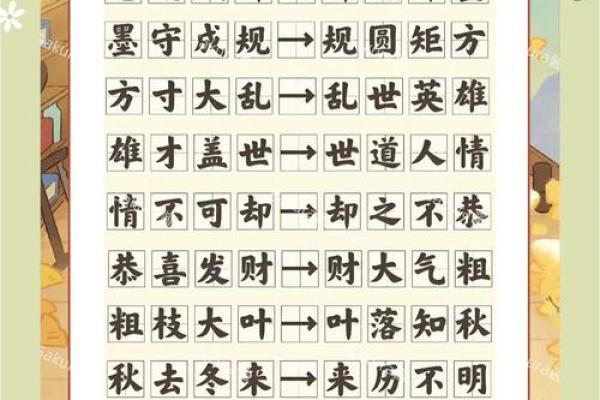 墨守成规→规圆矩方
方寸大乱→乱世英雄
雄才盖世→世道人情
情不可却→却之不恭
恭喜发财→财大气粗
粗枝大叶→叶落知秋
秋去冬来→来历不明